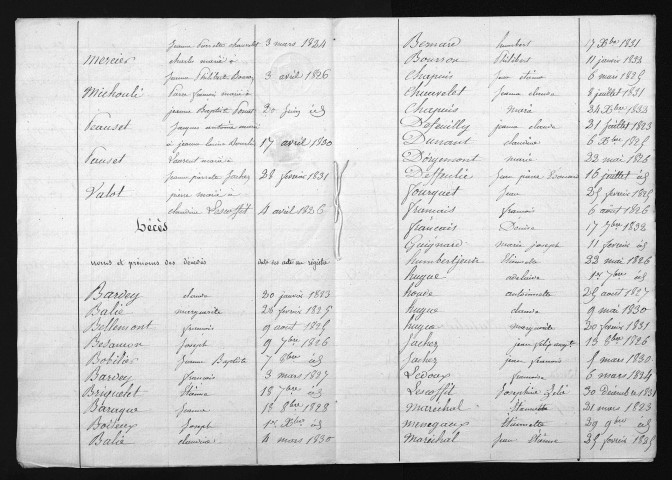 jeanne Pierrette chauvelot 3 mars 1824
Mercier charles marié à
jeanne Philiberte 3 avril 1826
Michoulé Pierre françois marié à
jeanne Baptiste 20 juin id
Feauset jacques antoine marié
à jeanne louise 17 avril 1830
Fauset Laurent marié à
jeanne pierrette Jachez 28 février 1831
Valot pierre marié à
claudine Lescoffit 4 avril 1826
Décès
noms et prénoms des décédés date des actes au registre
Bardey claude 20 janvier 1823
Balié marguerite 26 février 1825
Bellemont françois 9 août 1825
Besancon Joseph 9 7bre 1826
Bobilier Jeanne Baptiste 7 8bre id
Bardey françois 3 mars 1827
Briquelet Etienne 18 7bre id
Baraque Jeanne 13 8bre 1828
Boiteux Joseph 17 Xbre id
Balié claudine 4 mars 1830
Bernard humbert 17 Xbre 1831
Bourson Philibert 11 janvier 1833
Chapuis jean etienne 6 mars 1825
Chauvelet jeanne claude 8 juillet 1831
Chapuis marie 24 Xbre 1832
Defeuilly jeanne claude 21 juillet 1823
Durrant claudine 6 Xbre 1825
Dorgemont marie 23 mai 1826
Deffeulie jean pierre Bernard 16 juillet id
Fourquet Jean 25 février 1825
francais françois 6 août 1826
francais Denise 17 7bre 1832
Guignard marie joseph 11 février id
humbertjean Etiennette 22 mai 1826
hugue adelaine 17 7bre id
houre antoinette 25 août 1827
hugue claude 9 mai 1830
hugue marguerite 20 février 1831
Jachez 13 8bre 1826
Jachez jean françois 8 mars 1830
Ledoux françoise 6 mars 1824
Lescoffit Josephine 30 Décembre 1831
Marechal Etiennette 21 mars 1823
Menegaux Etiennette 29 9bre id
Marechal Jean Etienne 25 février 1825